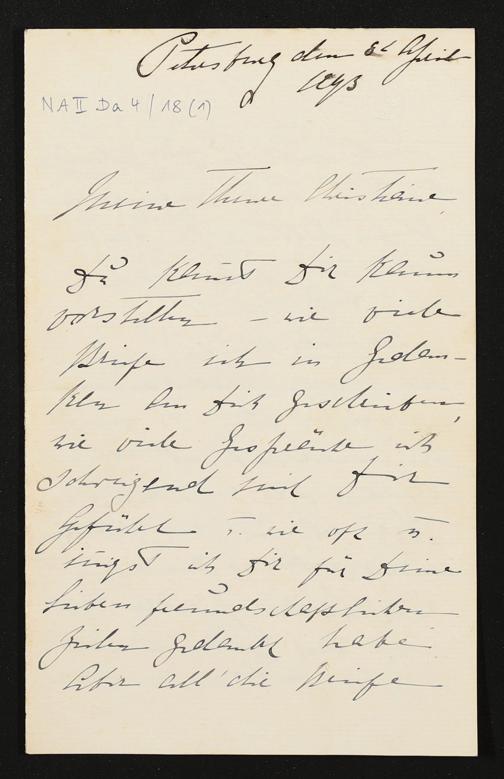 Petersburg den 8t April
1893
NA II Da 4 / 18 (1)
Meine Theure Christiane,
Du kannst Dir kaum
vorstellen – wie viele
Briefe ich in Gedan-
ken an Dich geschrieben,
wie viele Gespräche ich
schweigend mit Dir
geführt u. wie oft u.
innigst ich Dir für Deine
lieben freundschaftlichen
Zeilen gedankt habe
Aber all' die Briefe